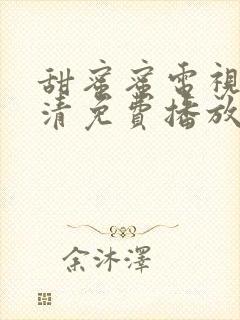 甜蜜蜜電視
清免費播放
余沐澤